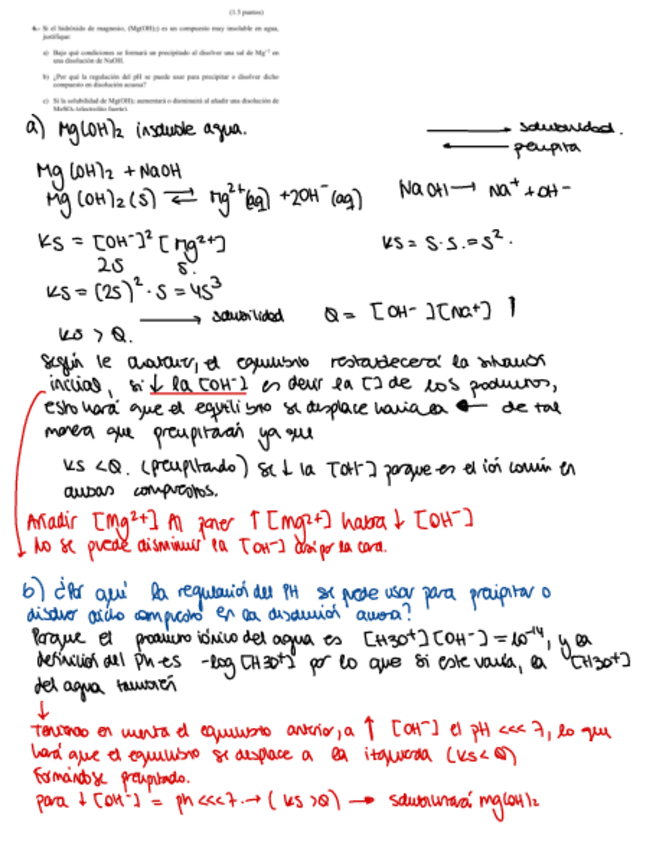 (1.5 puntos)
6.- Si el hidróxido de magnesio, (Mg(OH)₂) es un compuesto muy insoluble en agua,
justifique:
a) Bajo qué condiciones se formará un precipitado al disolver una sal de Mg⁺² en
una disolución de NaOH.
b) ¿Por qué la regulación del pH se puede usar para precipitar o disolver dicho
compuesto en disolución acuosa?
c) Si la solubilidad de Mg(OH)₂ aumentará o disminuirá al añadir una disolución de
MgSO₄ (electrolito fuerte)
a) Mg(OH)₂ insoluble agua. ⟶ solubilidad.
⟵ precipita
Mg(OH)₂ + NaOH
Mg(OH)₂(s) ⇄ Mg²⁺(aq) + 2OH⁻(aq) NaOH → Na⁺ + OH⁻
KS = [OH⁻]² [Mg²⁺] KS = S·S. = S².
2S S.
KS = (2S)² · S = 4S³
⟶ solubilidad Q = [OH⁻][Na⁺] ↑
KS > Q.
Según le el equilibrio restablecerá la situación
inicial, si ↓ la [OH⁻] es decir la [] de los productos,
esto hará que el equilibrio se desplace hacia la ← de tal
manera que precipitarán ya que
KS < Q. (precipitando) se ↓ la [OH⁻] porque es el ión común en
ambos compuestos.
Añadir [Mg²⁺] Al poner ↑ [Mg²⁺] habrá ↓ [OH⁻]
No se puede disminuir la [OH⁻] así por la cara.
b) ¿Por qué la regulación del PH se puede usar para precipitar o
disolver dicho compuesto en la disolución acuosa?
Porque el producto iónico del agua es [H3O⁺][OH⁻] = 10⁻¹⁴, y la
definición del Ph es -log [H3O⁺] por lo que si este varía, la [H3O⁺]
del agua también
↓
Teniendo en cuenta el equilibrio anterior, a ↑ [OH⁻] el pH <<< 7, lo que
hará que el equilibrio se desplace a la izquierda (KS < Q)
formándose precipitado.
para ↓ [OH⁻] = ph <<< 7. → (KS > Q) → solubilizará Mg(OH)₂